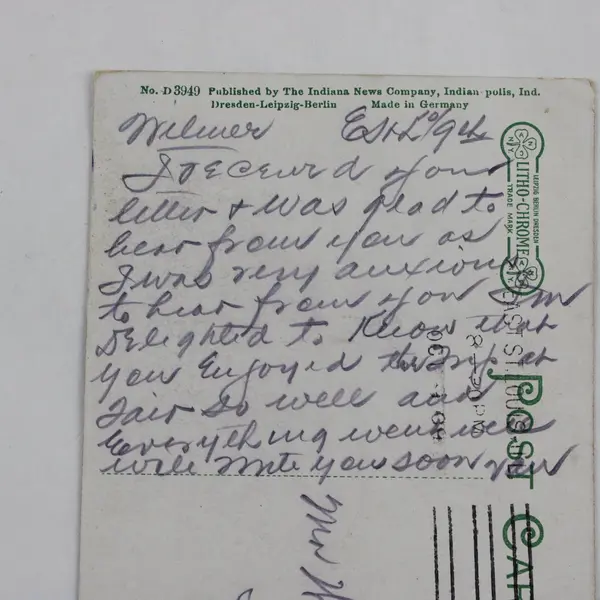 No. D3949 Published by The Indiana News Company, Indianapolis, Ind.
Dresden-Leipzig-Berlin Made in Germany
Wilmer
I receivd your
letter & was glad to
hear from you as
I was very anxious
to hear from you Im
Delighted to Know that
you Enjoyed the
Fair so well and
Everything
will write you soon
LITHO-CHROME
LEIPZIG BERLIN DRESDEN
TRADE MARK
EAST ST. LOUIS
8-30 PM
POST CAR